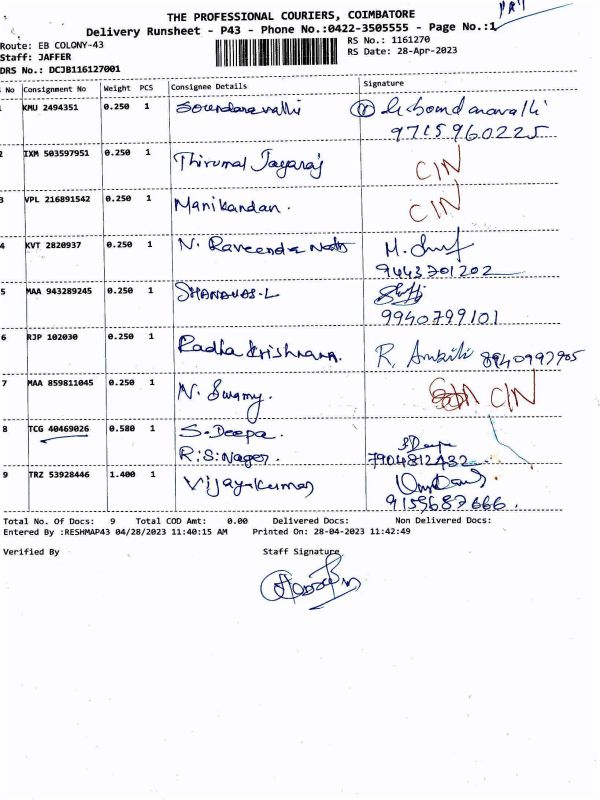 THE PROFESSIONAL COURIERS, COIMBATORE
Delivery Runsheet - P43 - Phone No.:0422-3505555 - Page No.:1
Route: EB COLONY-43 RS No.: 1161270
Staff: JAFFER RS Date: 28-Apr-2023
DRS No.: DCJB116127001
No Consignment No Weight PCS Consignee Details Signature
KMU 2494351 0.250 1 Soundaravalli
9715960225
2 IXM 503597951 0.250 1 Thirumal Jayaraj CIN
3 VPL 216891542 0.250 1 Manikandan. CIN
4 KVT 2820937 0.250 1 N. Raveendra Nath
9443701202
5 MAA 943289245 0.250 1 SHANAVAS-L
9940799101
6 RJP 102030 0.250 1 Radha Krishnana. R. 8940997905
7 MAA 859811045 0.250 1 N. Swamy. CIN
8 TCG 40469026 0.580 1 S-Deepa. S Deepa
R:S:Nager. 7904812432
9 TRZ 53928446 1.400 1 Vijay-kumar
9159687666.
Total No. Of Docs: 9 Total COD Amt: 0.00 Delivered Docs: Non Delivered Docs:
Entered By :RESHMAP43 04/28/2023 11:40:15 AM Printed On: 28-04-2023 11:42:49
Verified By Staff Signature